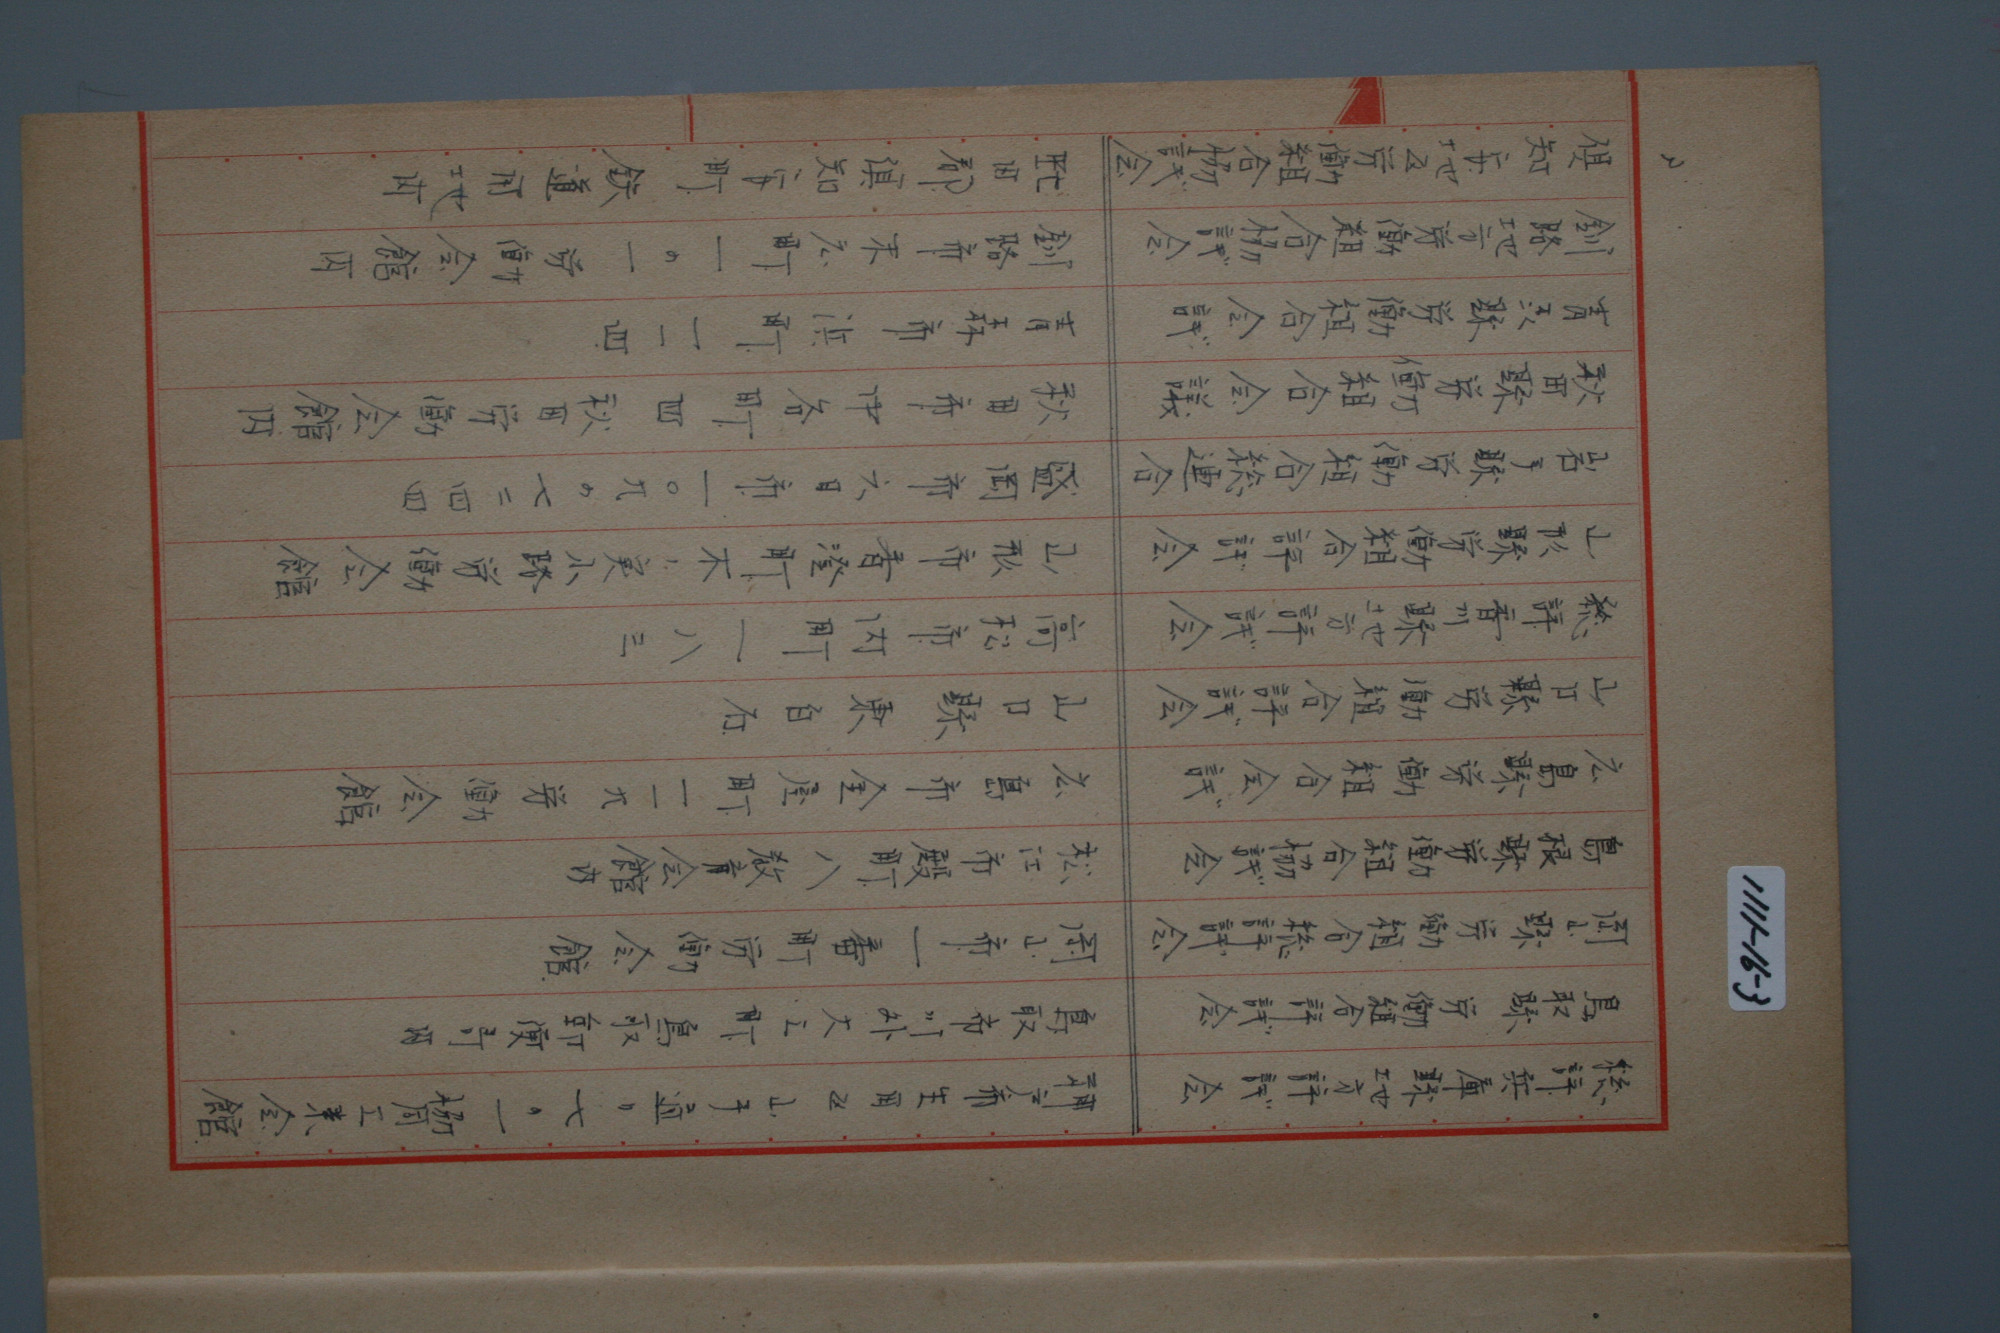 2
総評兵庫縣地方評議会
神戸市生田区山手通り七の一協同工業会館
鳥取縣労働組合評議会
鳥取市川外大工町鳥取 内
岡山縣労働組合総評議会
岡山市一番町労働会館
島根縣労働組合協議会
松江市殿町八教育会館内
広島縣労働組合会議
広島市金屋町二九労働会館
山口縣労働組合評議会
山口縣東白石
総評香川縣地方評議会
高松市内町一八三
山形縣労働組合評議会
山形市香澄町木ノ実小路労働会館
岩手縣労働組合総連合
盛岡市六日市一〇九の七二四四
秋田縣労働組合会議
秋田市中谷町四秋田労働会館内
青森縣労働組合会議
青森市浜町 四
釧路地方労働組合協議会
釧路市末広町一の一労働会館内
倶知安地区労働組合協議会
虻田郡倶知安町鉄道用地内
1111-16-3